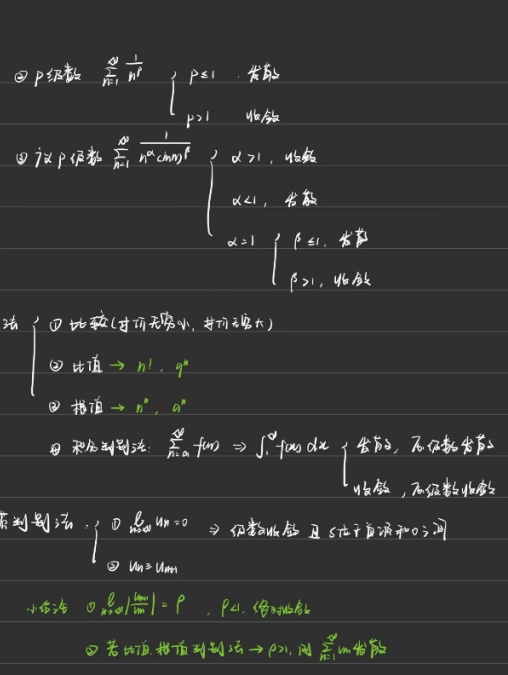 ② P级数 ∑_{n=1}^{∞} 1/n^p { p≤1, 发散
p>1 收敛
③ 广义P级数 ∑_{n=1}^{∞} 1/(n^α(lnn)^β) { α>1, 收敛
α<1, 发散
α=1 { β≤1, 发散
β>1, 收敛
法 { ① 比较(等价无穷小, 等价无穷大)
② 比值 → n!, a^n
③ 根值 → n^n, a^n
④ 积分判别法: ∑_{n=1}^{∞} f(n) ⇒ ∫_1^{∞} f(x)dx { 发散, 原级数发散
收敛, 原级数收敛
判别法 { ① lim_{n→∞} un=0 ⇒ 级数收敛 且 S位于首项和0之间
② un≥un+1
小结论 ① lim_{n→∞} |un+1/un| = ρ, ρ<1, 绝对收敛
② 若比值、根值判别法 → ρ>1, 则 ∑_{n=1}^{∞} un发散